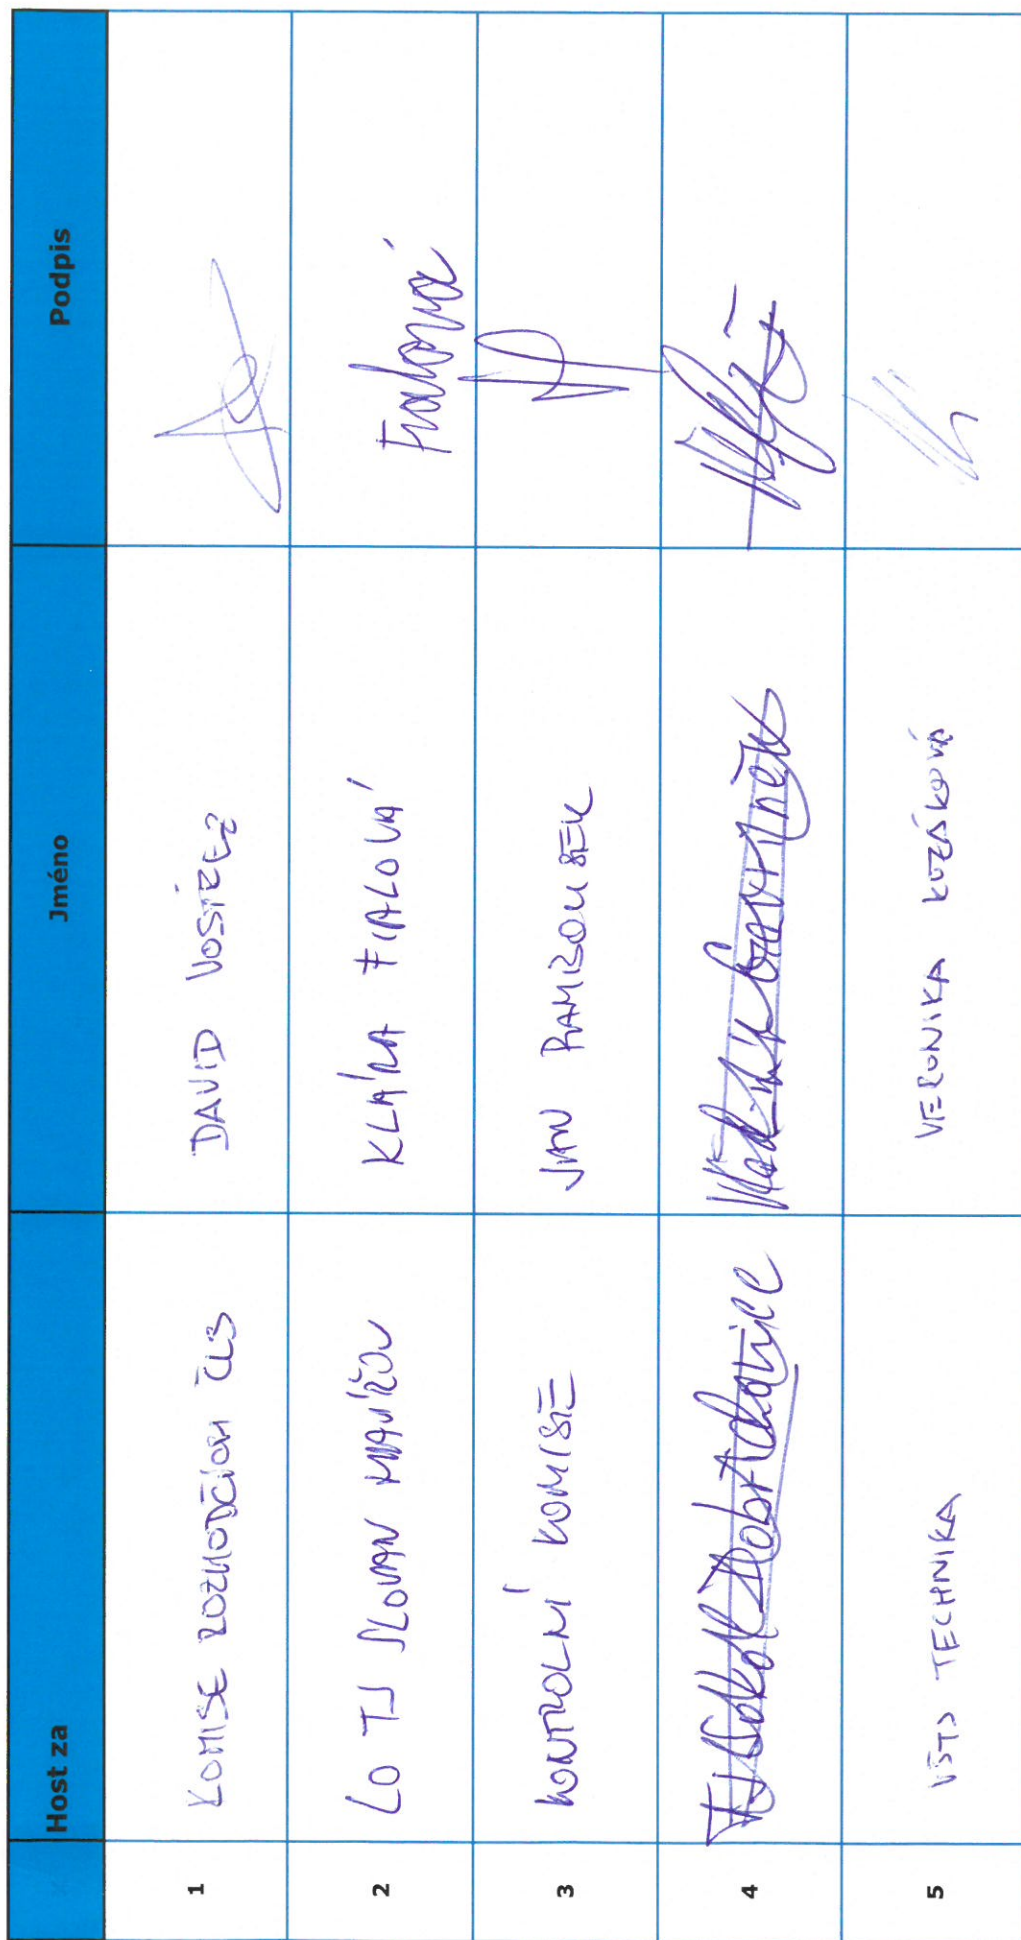 Host za Jméno Podpis
1 KOMISE ROZHODČÍCH ČLS DAVID
2 LO TJ SLOVAN KLÁRA FIALOVÁ Fialová
3 KONTROLNÍ KOMISE JAN RAMBOUSEK
4 TJ Sokol Dobřichovice
5 VŠTJ TECHNIKA VERONIKA